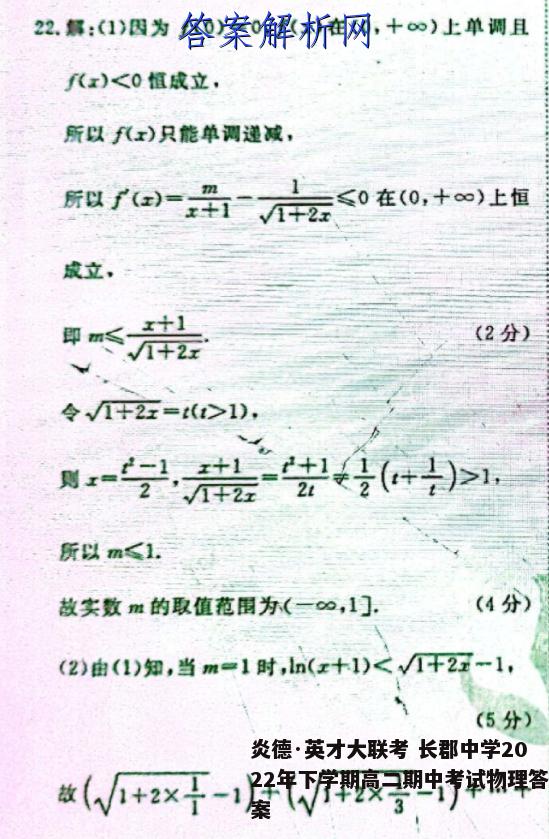 答案解析网
22.解:(1)因为 f(0)=0, 在 ,+∞)上单调且
f(x)<0 恒成立,
所以 f(x)只能单调递减,
所以 f′(x)=m/(x+1)-1/√(1+2x)≤0 在(0,+∞)上恒
成立,
即 m≤(x+1)/√(1+2x). (2 分)
令√(1+2x)=t(t>1),
则 x=(t²-1)/2,(x+1)/√(1+2x)=(t²+1)/2t=1/2(t+1/t)>1,
所以 m≤1.
故实数 m 的取值范围为(-∞,1]. (4 分)
(2)由(1)知,当 m=1 时,ln(x+1)<√(1+2x)-1,
(5 分)
炎德·英才大联考 长郡中学20
22年下学期高二期中考试物理答
案
故(√(1+2×1/1)-1)+(√(1+2× /3)-1)+